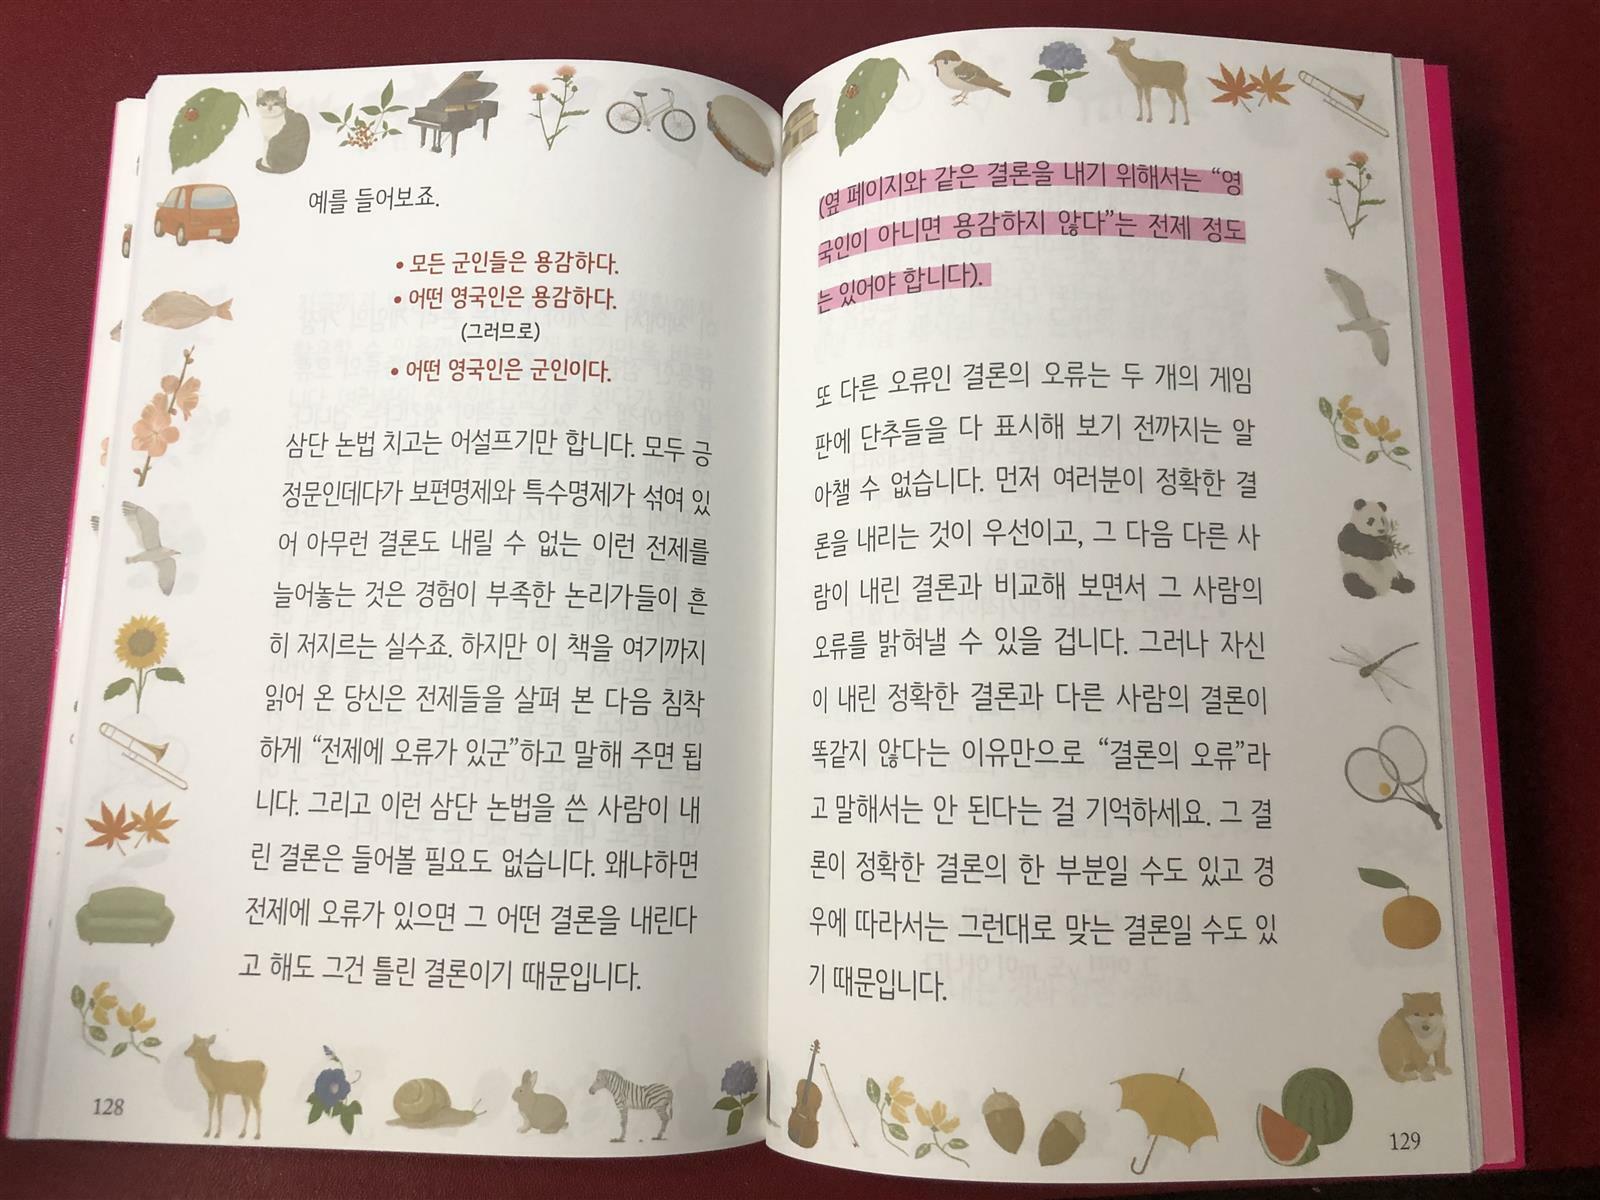 예를 들어보죠.
• 모든 군인들은 용감하다.
• 어떤 영국인은 용감하다.
(그러므로)
• 어떤 영국인은 군인이다.
삼단 논법 치고는 어설프기만 합니다. 모두 긍
정문인데다가 보편명제와 특수명제가 섞여 있
어 아무런 결론도 내릴 수 없는 이런 전제를
늘어놓는 것은 경험이 부족한 논리가들이 흔
히 저지르는 실수죠. 하지만 이 책을 여기까지
읽어 온 당신은 전제들을 살펴 본 다음 침착
하게 “전제에 오류가 있군”하고 말해 주면 됩
니다. 그리고 이런 삼단 논법을 쓴 사람이 내
린 결론은 들어볼 필요도 없습니다. 왜냐하면
전제에 오류가 있으면 그 어떤 결론을 내린다
고 해도 그건 틀린 결론이기 때문입니다.
128
(옆 페이지와 같은 결론을 내기 위해서는 “영
국인이 아니면 용감하지 않다”는 전제 정도
는 있어야 합니다).
또 다른 오류인 결론의 오류는 두 개의 게임
판에 단추들을 다 표시해 보기 전까지는 알
아챌 수 없습니다. 먼저 여러분이 정확한 결
론을 내리는 것이 우선이고, 그 다음 다른 사
람이 내린 결론과 비교해 보면서 그 사람의
오류를 밝혀낼 수 있을 겁니다. 그러나 자신
이 내린 정확한 결론과 다른 사람의 결론이
똑같지 않다는 이유만으로 “결론의 오류”라
고 말해서는 안 된다는 걸 기억하세요. 그 결
론이 정확한 결론의 한 부분일 수도 있고 경
우에 따라서는 그런대로 맞는 결론일 수도 있
기 때문입니다.
129